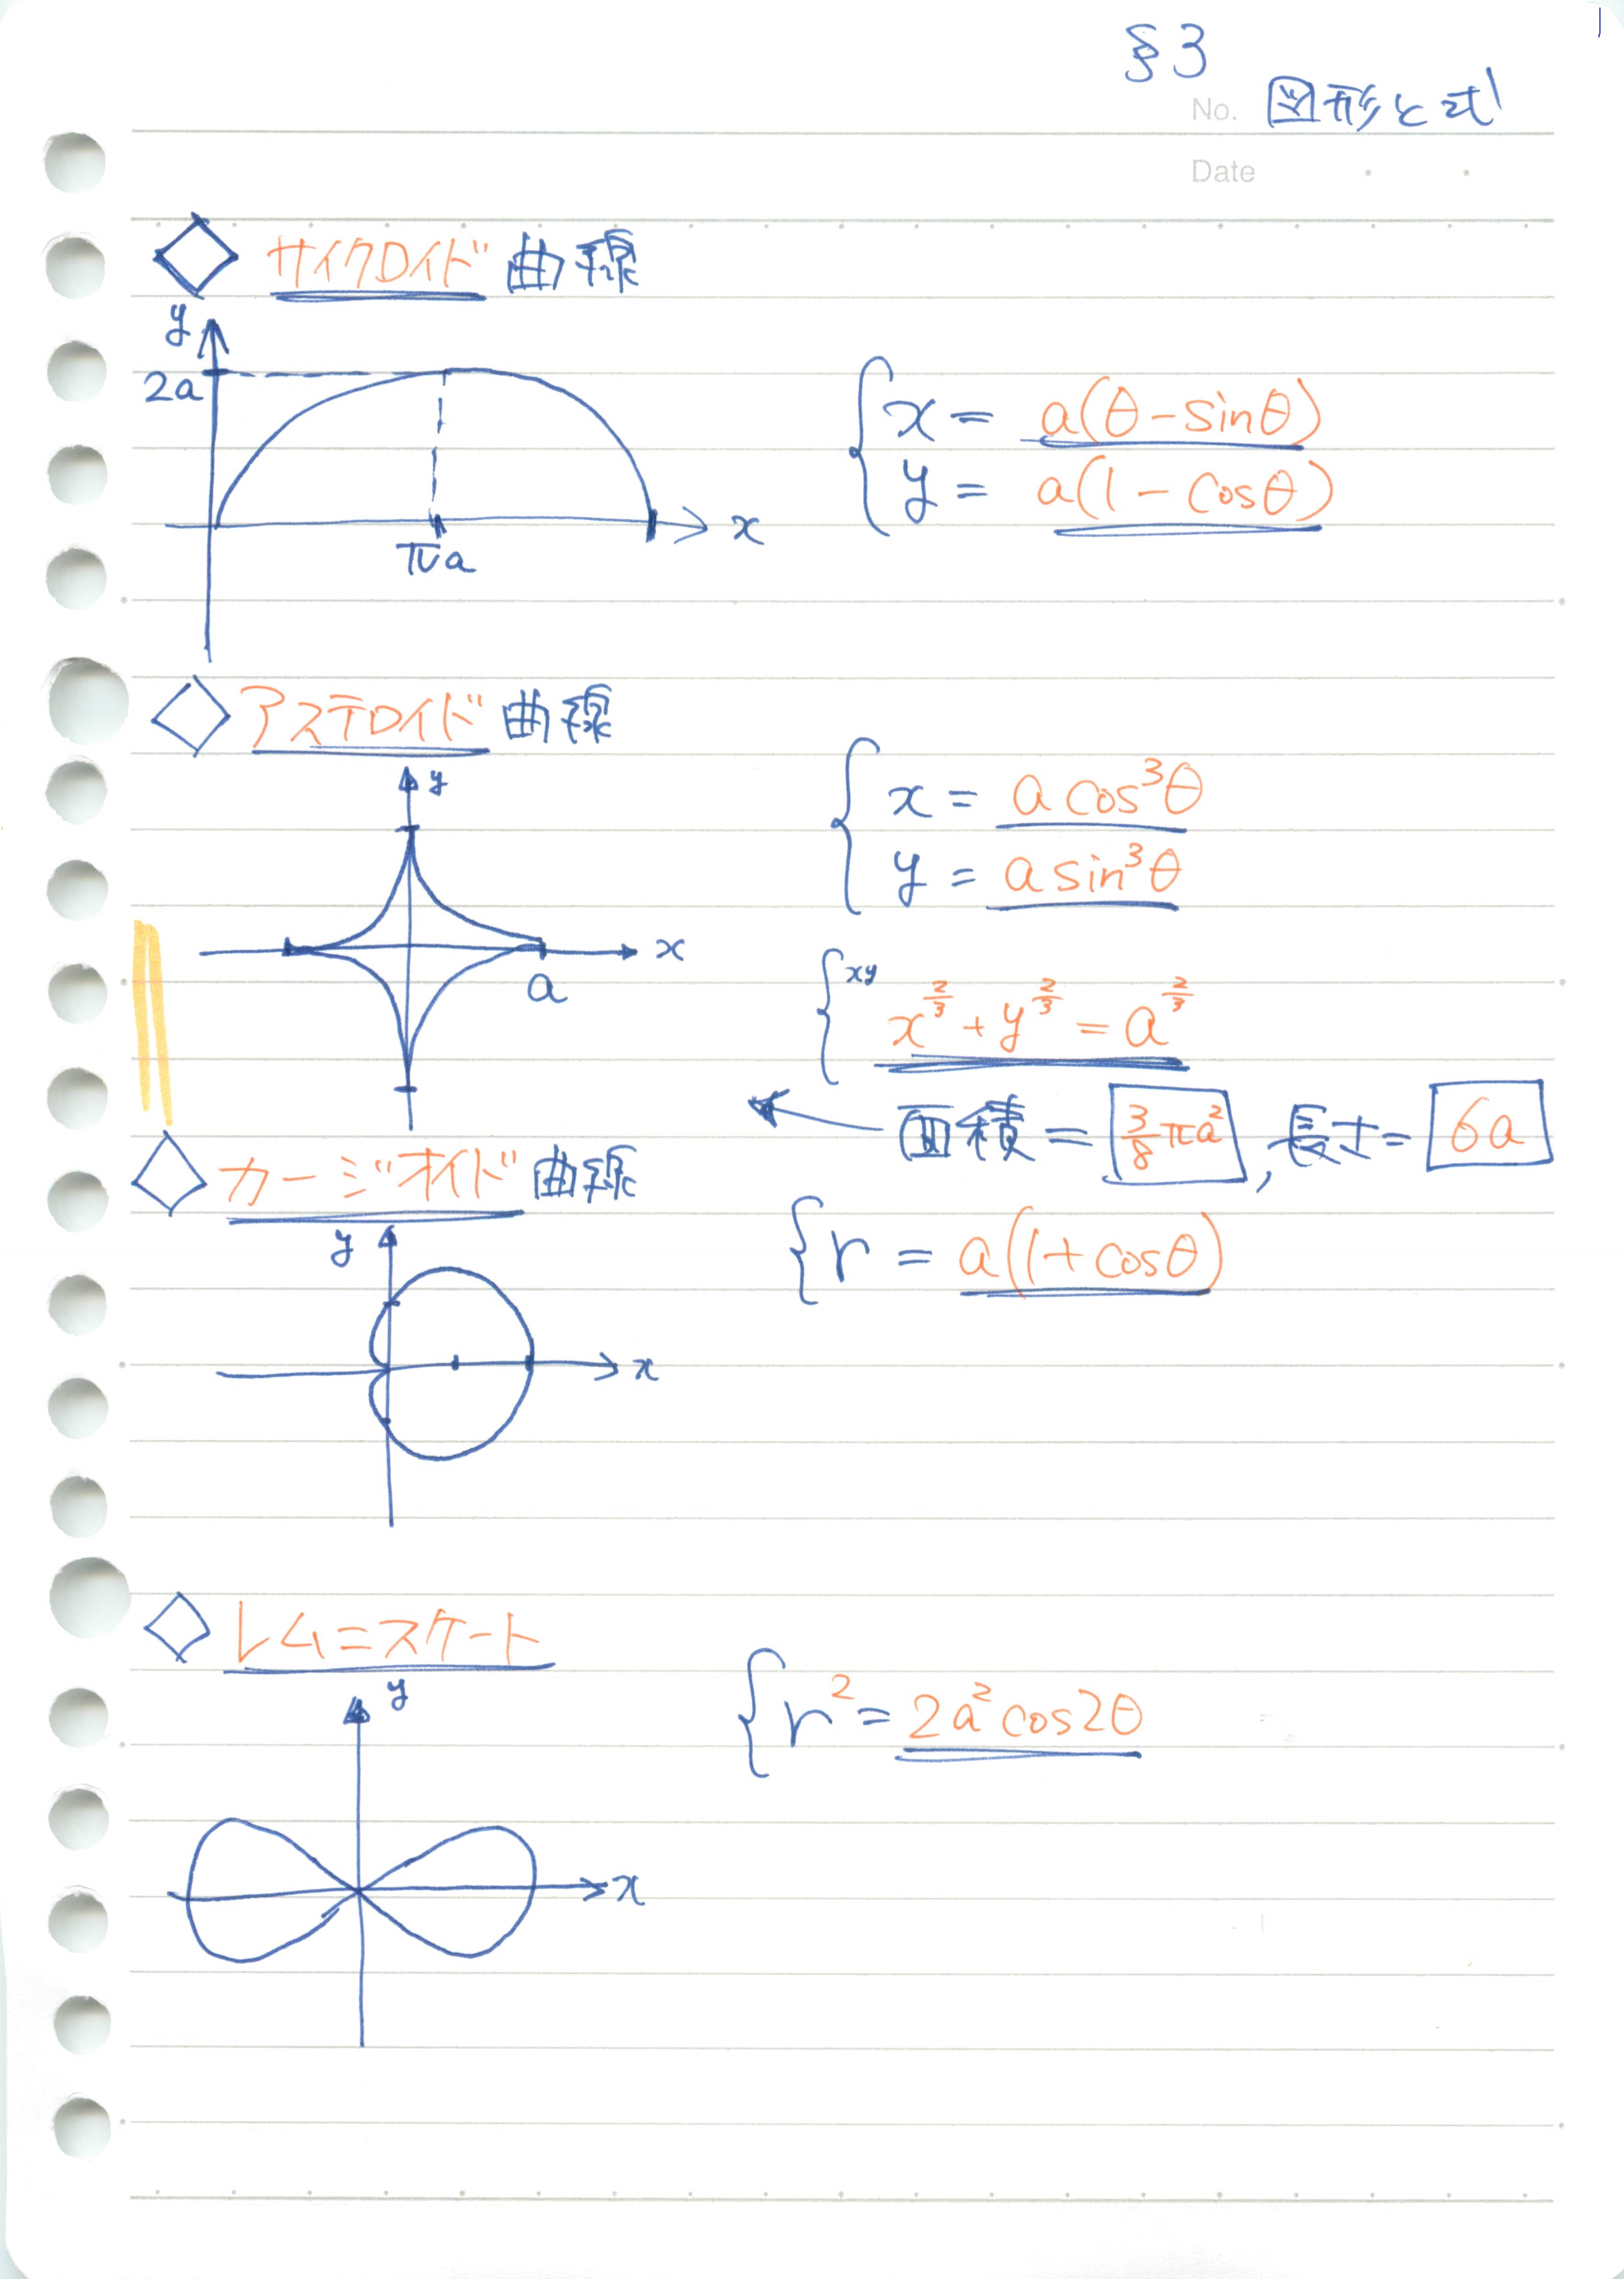 §3
No. 図形と式
Date
◇ サイクロイド 曲線
y
2a
x
πa
x = a(θ-sinθ)
y = a(1-cosθ)
◇ アステロイド 曲線
y
x
a
x = a cos³θ
y = a sin³θ
xy
x^{2/3} + y^{2/3} = a^{2/3}
面積 = 3/8 πa², 長さ = 6a
◇ カージオイド 曲線
y
x
r = a(1+cosθ)
◇ レムニスケート
y
x
r² = 2a² cos2θ